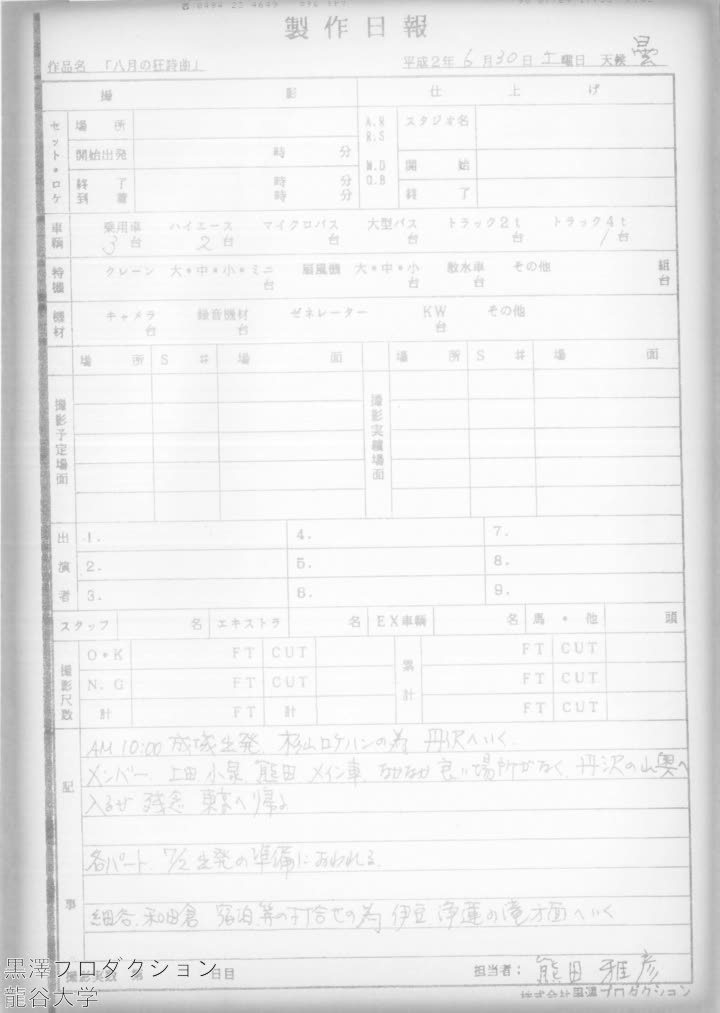 製作日報
作品名 「八月の狂詩曲」 平成2年6月30日土曜日 天候 曇
撮影 仕上げ
セット・ロケ 場所 A.R R.S スタジオ名
開始出発 時 分 M.D D.B 開始
終了 時 分 終了
到着 時 分
車輌 乗用車 ハイエース マイクロバス 大型バス トラック2t トラック4t
3台 2台 台 台 台 1台
特機 クレーン 大・中・小・ミニ 扇風機 大・中・小 散水車 その他 組
台 台 台 台
機材 キャメラ 録音機材 ゼネレーター KW その他
台 台 台
場所 S# 場面 場所 S# 場面
撮影予定場面 撮影実績場面
出演者 1. 4. 7.
2. 5. 8.
3. 6. 9.
スタッフ 名 エキストラ 名 EX車輌 名 馬・他 頭
撮影尺数 O・K FT CUT 累計 FT CUT
N.G FT CUT FT CUT
計 FT 計 FT CUT
記事
AM 10:00 成城出発 杉山ロケハンの為 丹沢へいく
メンバー 上田 小泉 熊田 メイン車 なかなか良い場所がなく、丹沢の山奥へ
入るが 残念 東京へ帰る
各パート、7/2出発の準備におわれる。
細谷、和田倉 宿泊等の打合せの為 伊豆 浄蓮の滝方面へいく
撮影実数 第 日目 担当者: 熊田 雅彦
株式会社黒澤プロダクション
黒澤プロダクション
龍谷大学